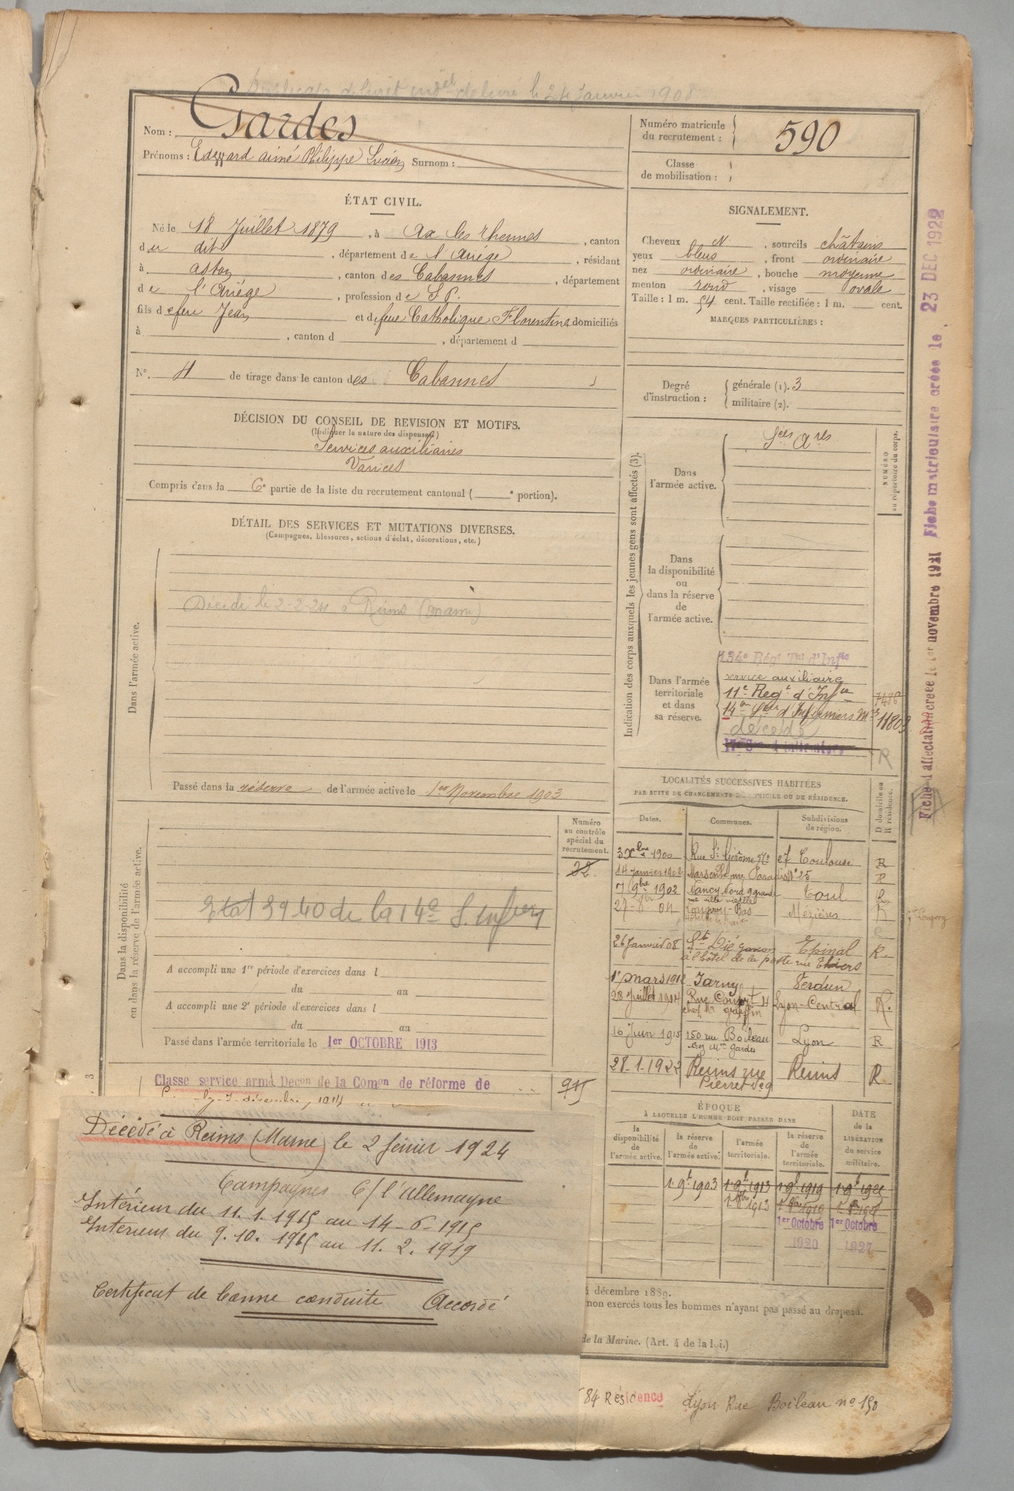 délivré le 24 Janvier 1908
Nom : Gardes
Prénoms : Edouard aimé Philippe Lucien Surnom :
Numéro matricule du recrutement : 590
Classe de mobilisation :
ÉTAT CIVIL.
Né le 18 Juillet 1879, à Ax les thermes, canton
du dit, département de l'Ariége, résidant
à aston, canton des Cabannes, département
de l'Ariége, profession de S.P.
fils de feu Jean et de feue Catholique Florentine domiciliés
à , canton d , département d
N°. 4 de tirage dans le canton des Cabannes
SIGNALEMENT.
Cheveux N, sourcils châtains
yeux bleus, front ordinaire
nez ordinaire, bouche moyenne
menton rond, visage ovale
Taille : 1 m. 54 cent. Taille rectifiée : 1 m. cent.
MARQUES PARTICULIÈRES :
Degré d'instruction : générale (1). 3
militaire (2).
DÉCISION DU CONSEIL DE REVISION ET MOTIFS.
(Indiquer la nature des dispenses)
Services auxiliaires
Varices
Compris dans la 6e partie de la liste du recrutement cantonal ( e portion).
DÉTAIL DES SERVICES ET MUTATIONS DIVERSES.
(Campagnes, blessures, actions d'éclat, décorations, etc.)
Dans l'armée active.
Décédé le 2-2-24 à Reims (marne)
Passé dans la réserve de l'armée active le 1er Novembre 1903
Indication des corps auxquels les jeunes gens sont affectés (3).
NUMÉRO au répertoire du corps.
Dans l'armée active.
Sces Ares
Dans la disponibilité ou dans la réserve de l'armée active.
Dans l'armée territoriale et dans sa réserve.
134e Régt Tal d'Infie
service auxiliaire
11e Regt d'Infie
14e Son d'Infirmiers Mres 11803
décédé
R
Dans la disponibilité ou dans la réserve de l'armée active.
Numéro au contrôle spécial du recrutement.
22
3940 de la 14e S. Infers
A accompli une 1re période d'exercices dans l
du au
A accompli une 2e période d'exercices dans l
du au
Passé dans l'armée territoriale le 1er OCTOBRE 1913
Classe service armé Decon de la Comon de réforme de
915
LOCALITÉS SUCCESSIVES HABITÉES
PAR SUITE DE CHANGEMENTS DE DOMICILE OU DE RÉSIDENCE.
D domicile ou R résidence.
Dates. Communes. Subdivisions de région.
3 Xbre 1900 Rue St Jérôme Toulouse R
14 janvier 1902 Marseille R
7 9bre 1902 Nancy Toul R
27-8-04 Longwy-Bas Mézières R
26 Janvier 08 St Dié Epinal R.
à l'hôtel de la poste rue Thiers
1er mars 1912 Jarny Verdun
28 Juillet 1914 Rue Lyon-Central R.
16 Juin 1915 150 rue Boileau Lyon R
chez Me Gardes
28.1.1922 Reims rue Reims R
ÉPOQUE
À LAQUELLE L'HOMME DOIT PASSER DANS
DATE de la LIBÉRATION du service militaire.
la disponibilité de l'armée active. la réserve de l'armée active. l'armée territoriale. la réserve de l'armée territoriale.
1 9e 1903 1 9e 1913 1 9e 1919
1er Octobre 1920 1er Octobre 1927
Décédé à Reims (Marne) le 2 février 1924
Campagnes C/ l'Allemagne
Intérieur du 11.1.1915 au 14-6-1915
Intérieur du 9.10.1915 au 11.2.1919
Certificat de bonne conduite Accordé
décembre 1889.
non exercés tous les hommes n'ayant pas passé au drapeau.
de la Marine. (Art. 4 de la loi.)
84 Résidence Lyon Rue Boileau no 150
Fiche d'affectation créée le 1er novembre 1921 Fiche matriculaire créée le 23 DEC 1922